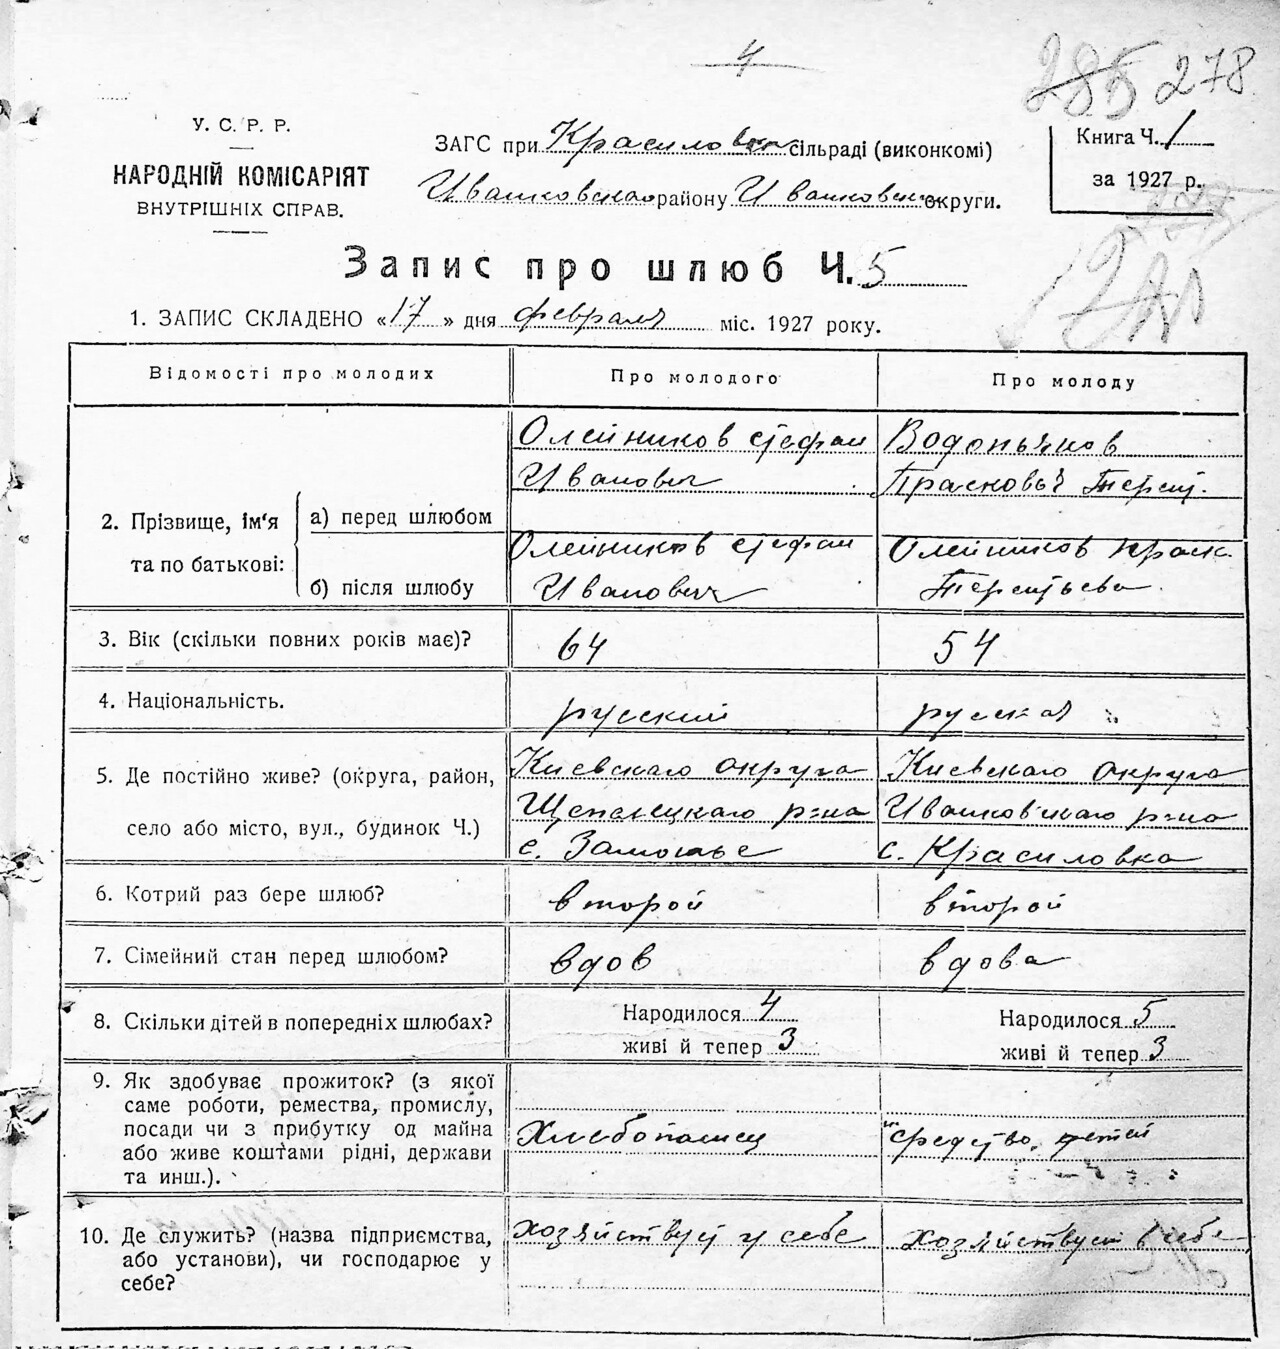 4
285 278
У. С. Р. Р.
НАРОДНІЙ КОМІСАРІЯТ
ВНУТРІШНІХ СПРАВ.
ЗАГС при Красиловк сільраді (виконкомі)
Ивашковскаго району Ивашковск округи.
Книга Ч. 1
за 1927 р.
Запис про шлюб Ч. 5
1. ЗАПИС СКЛАДЕНО «17» дня февраля міс. 1927 року.
Відомості про молодих Про молодого Про молоду
2. Прізвище, ім'я та по батькові:
а) перед шлюбом
Олейников Стефан
Иванович
Водопьянов
Прасковья Терент.
б) після шлюбу
Олейников Стефан
Иванович
Олейников Праск.
Терентьева
3. Вік (скільки повних років має)? 64 54
4. Національність. русский русская
5. Де постійно живе? (округа, район,
село або місто, вул., будинок Ч.)
Киевскаго округа
р=на
с. Замостье
Киевскаго округа
Ивашковскаго р=на
с. Красиловка
6. Котрий раз бере шлюб? второй второй
7. Сімейний стан перед шлюбом? вдов вдова
8. Скільки дітей в попередніх шлюбах?
Народилося 4
живі й тепер 3
Народилося 5
живі й тепер 3
9. Як здобуває прожиток? (з якої
саме роботи, ремества, промислу,
посади чи з прибутку од майна
або живе коштами рідні, держави
та инш.).
Хлебопашец
средство детей
10. Де служить? (назва підприємства,
або установи), чи господарює у
себе?
хозяйствует у себе
хозяйствует в себе